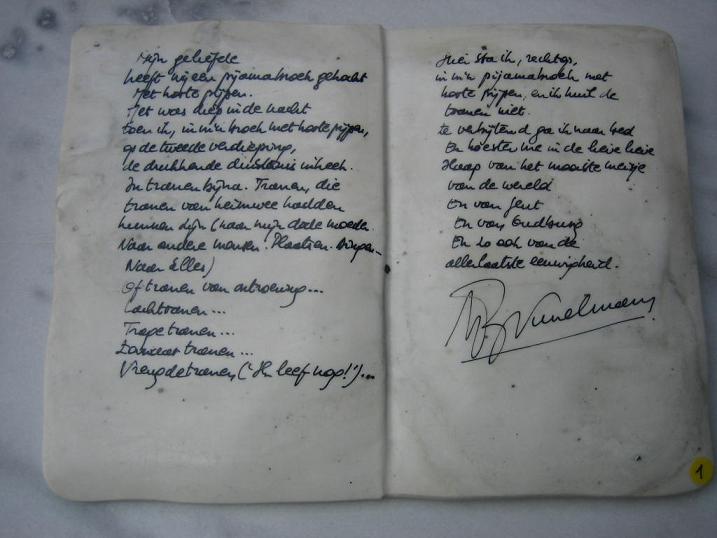 Mijn geliefde
heeft mij een pijamabroek gekocht
Met korte pijpen.
Het was diep in de nacht
toen ik, in m'n broek met korte pijpen,
op de tweede verdieping,
de drukkende duisternis inkeek.
In tranen bijna. Tranen, die
tranen van heimwee hadden
kunnen zijn (naar mijn dode moeder.
Naar andere mensen. Plaatsen. Dingen...
Naar Elles)
Of tranen van ontroering...
Lachtranen...
Trage tranen...
tranen...
Vreugdetranen ("Ik leef nog!")...
Hier sta ik, rechtop,
in m'n pijamabroek met
korte pijpen, en ik huil de
tranen niet.
te verbijtend ga ik naar bed
En koester me in de lieve lieve
Slaap van het mooiste meisje
van de wereld
En van Gent
En van
En zo ook van de
allerlaatste eeuwigheid.
1